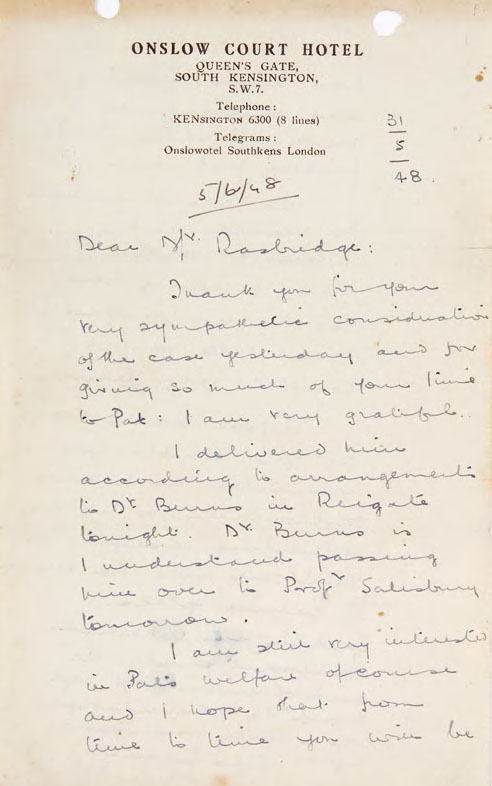 ONSLOW COURT HOTEL
QUEEN'S GATE,
SOUTH KENSINGTON,
S.W.7.
Telephone :
KENSINGTON 6300 (8 lines)
Telegrams :
Onslowotel Southkens London
31
5
48.
5/6/48
Dear Mr. Rasbridge:
Thank you for your
very sympathetic consideration
of the case yesterday and for
giving so much of your time
to Pat: I am very grateful..
I delivered him
according to arrangements
to Dr Burns in Reigate
tonight. Dr. Burns is
I understand passing
him over to Profr Salisbury
tomorrow.
I am still very interested
in Pat's welfare ofcourse
and I hope that from
time to time you will be